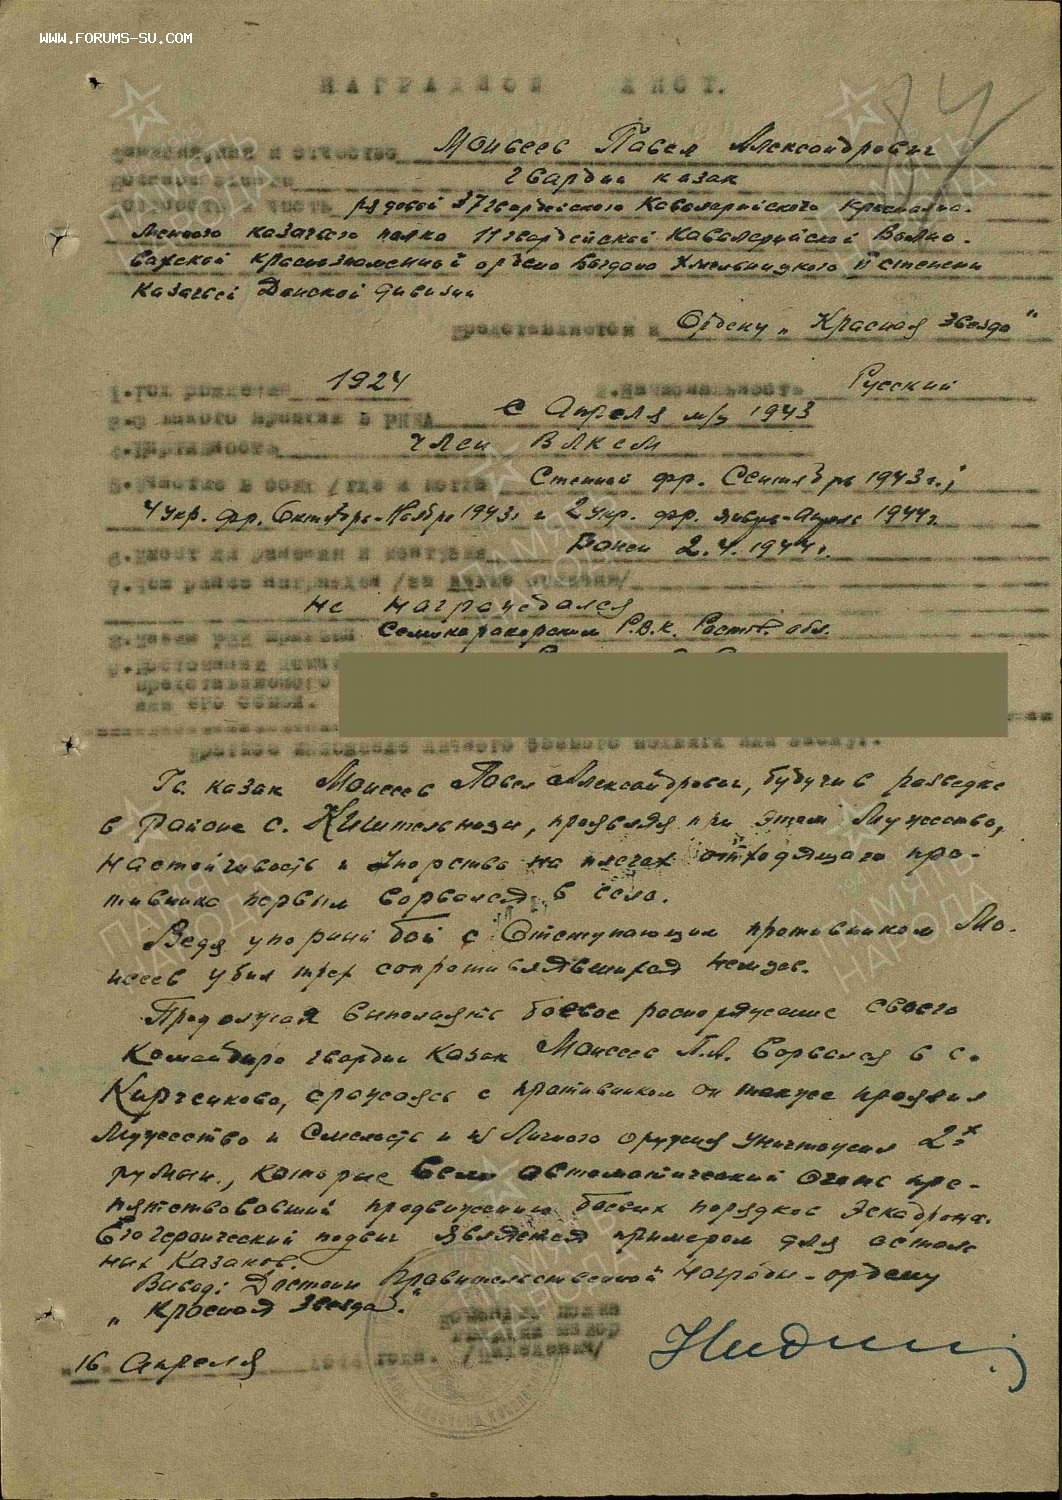 WWW.FORUMS-SU.COM
НАГРАДНОЙ ЛИСТ.
Фамилия, имя и отчество Моисеев Павел Александрович
Военное звание гвардии казак
Должность и часть рядовой 37 гвардейского Кавалерийского Краснозна-
менного казачьего полка 11 гвардейской Кавалерийской Волно-
вахской краснознаменной ордена Богдана Хмельницкого II степени
Казачьей Донской дивизии
Представляется к Ордену „Красная звезда"
1. Год рождения 1924 2. Национальность Русский
3. С какого времени в РККА с Апреля м/ц 1943
4. Партийность член ВЛКСМ
5. Участие в боях /где и когда Степной фр. Сентябрь 1943 г.;
4 укр. фр. Октябрь-Ноябрь 1943 г и 2 укр. фр. январь-Апрель 1944 г.
6. Имеет ли ранения и контузии Ранен 2.4.1944 г.
7. Чем ранее награжден /за какие отличия/
Не награждался
8. Каким РВК призван Семикаракорским Р.В.К. Ростов. обл.
9. Постоянный
представляемого
или его семьи.
Краткое изложение личного боевого подвига или заслуг.
Гв. казак Моисеев Павел Александрович, будучи в разведке
в районе с. проявляя при этом Мужество,
настойчивость и упорство на плечах отходящего про-
тивника первым ворвался в село.
Ведя упорный бой с Отступающим противником Мо-
исеев убил трех сопротивлявшихся немцев.
Продолжая выполнять боевое распоряжение своего
Командира гвардии казак Моисеев П.А. ворвался в с.
сражаясь с противником он также проявил
Мужество и Смелость и из Личного оружия уничтожил 2-х
румын., которые вели автоматический Огонь пре-
пятствовавший продвижению боевых порядков Эскадрона.
Его героический подвиг является примером для осталь
ных Казаков.
Вывод: Достоин Правительственной Награды - ордену
„Красная Звезда".
Командир полка
гвардии майор
"16 Апреля 1944 года.
ПАМЯТЬ
НАРОДА
ПАМЯТЬ
НАРОДА
ПАМЯТЬ
НАРОДА
ПАМЯТЬ
НАРОДА
ПАМЯТЬ
НАРОДА
ПАМЯТЬ
НАРОДА